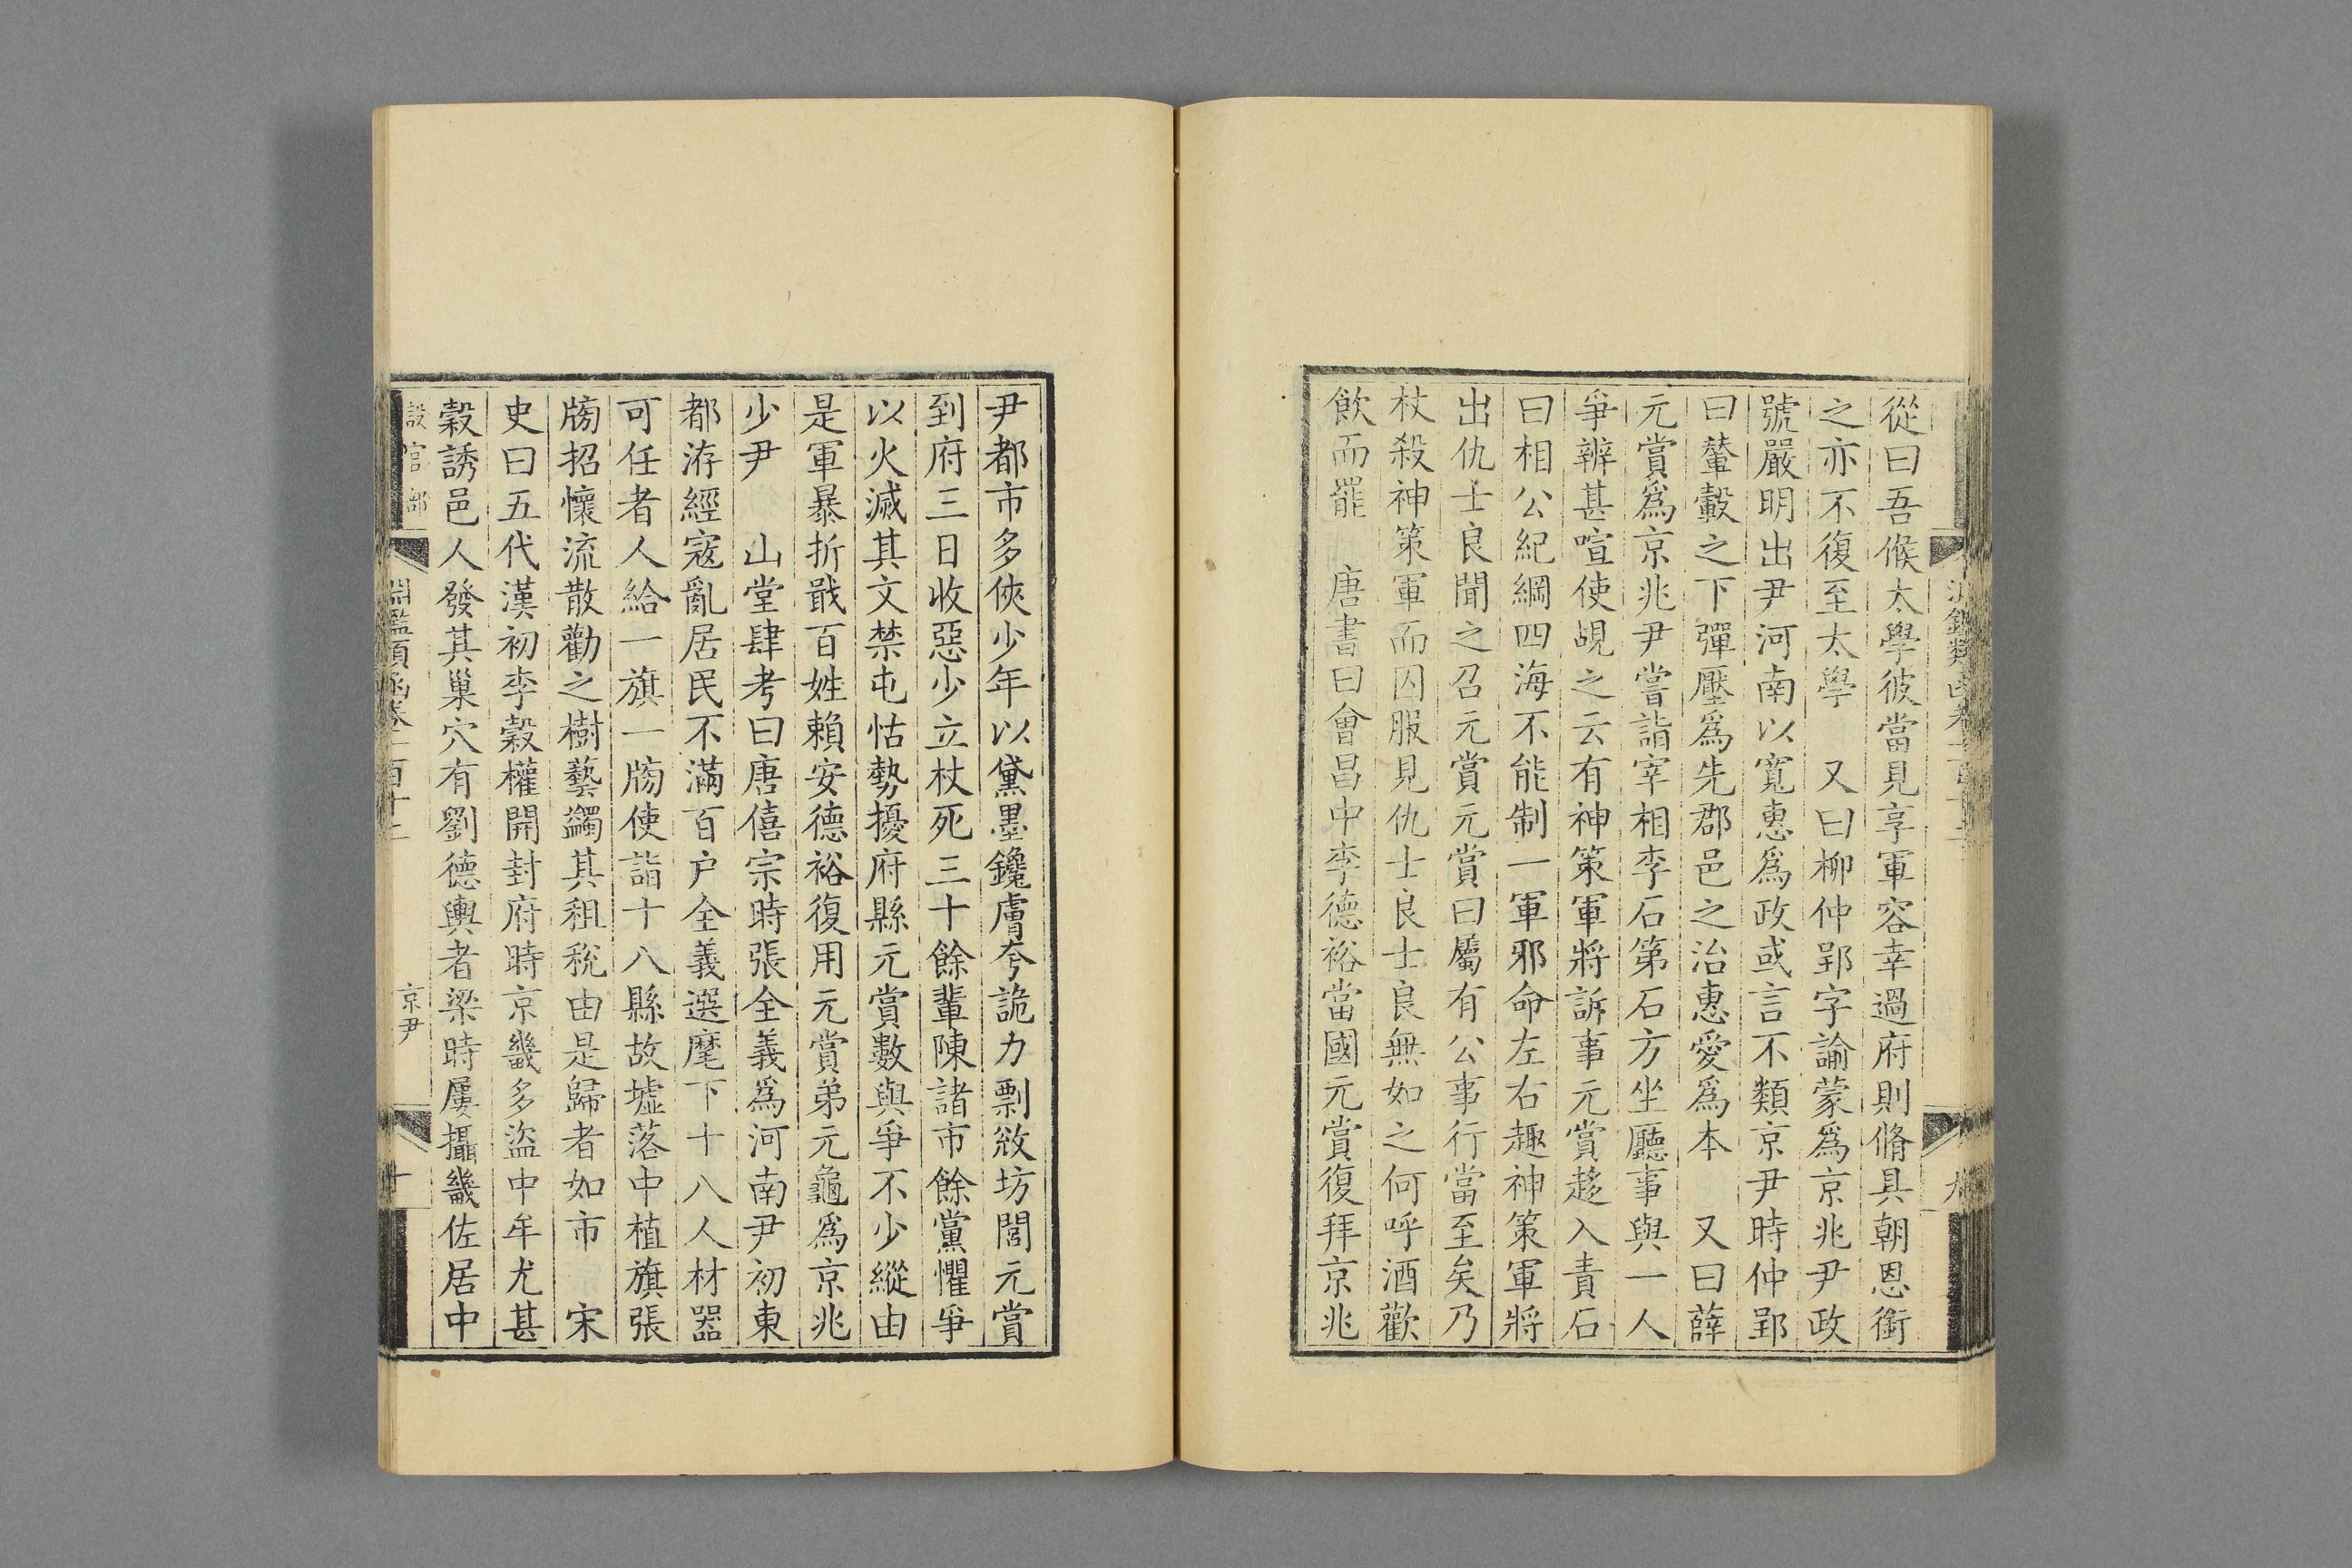 從曰吾候太學彼當見享軍容幸過府則脩具朝恩銜
之亦不復至太學　又曰柳仲郢字諭蒙爲京兆尹政
號嚴明出尹河南以寬惠爲政或言不類京尹時仲郢
曰輦轂之下彈壓爲先郡邑之治惠愛爲本　又曰薛
元賞爲京兆尹嘗詣宰相李石第石方坐廳事與一人
爭辨甚喧使覘之云有神策軍將訴事元賞趍入責石
曰相公紀綱四海不能制一軍邪命左右趣神策軍將
出仇士良聞之召元賞元賞曰屬有公事行當至矣乃
杖殺神策軍而囚服見仇士良士良無如之何呼酒歡
飲而罷　唐書曰會昌中李德裕當國元賞復拜京兆
尹都市多俠少年以黛墨鑱膚夸詭力剽敓坊閭元賞
到府三日收惡少立杖死三十餘輩陳諸市餘黨懼爭
以火滅其文禁屯怙勢擾府縣元賞數與爭不少縱由
是軍暴折戢百姓賴安德裕復用元賞弟元龜爲京兆
少尹　山堂肆考曰唐僖宗時張全義爲河南尹初東
都洊經寇亂居民不滿百戶全義選麾下十八人材器
可任者人給一旗一牓使詣十八縣故墟落中植旗張
牓招懷流散勸之樹藝蠲其租稅由是歸者如市　宋
史曰五代漢初李穀權開封府時京畿多盜中牟尤甚
穀誘邑人發其巢穴有劉德輿者梁時屢攝畿佐居中
設官部
淵鑑類函卷一百十二
京尹
十